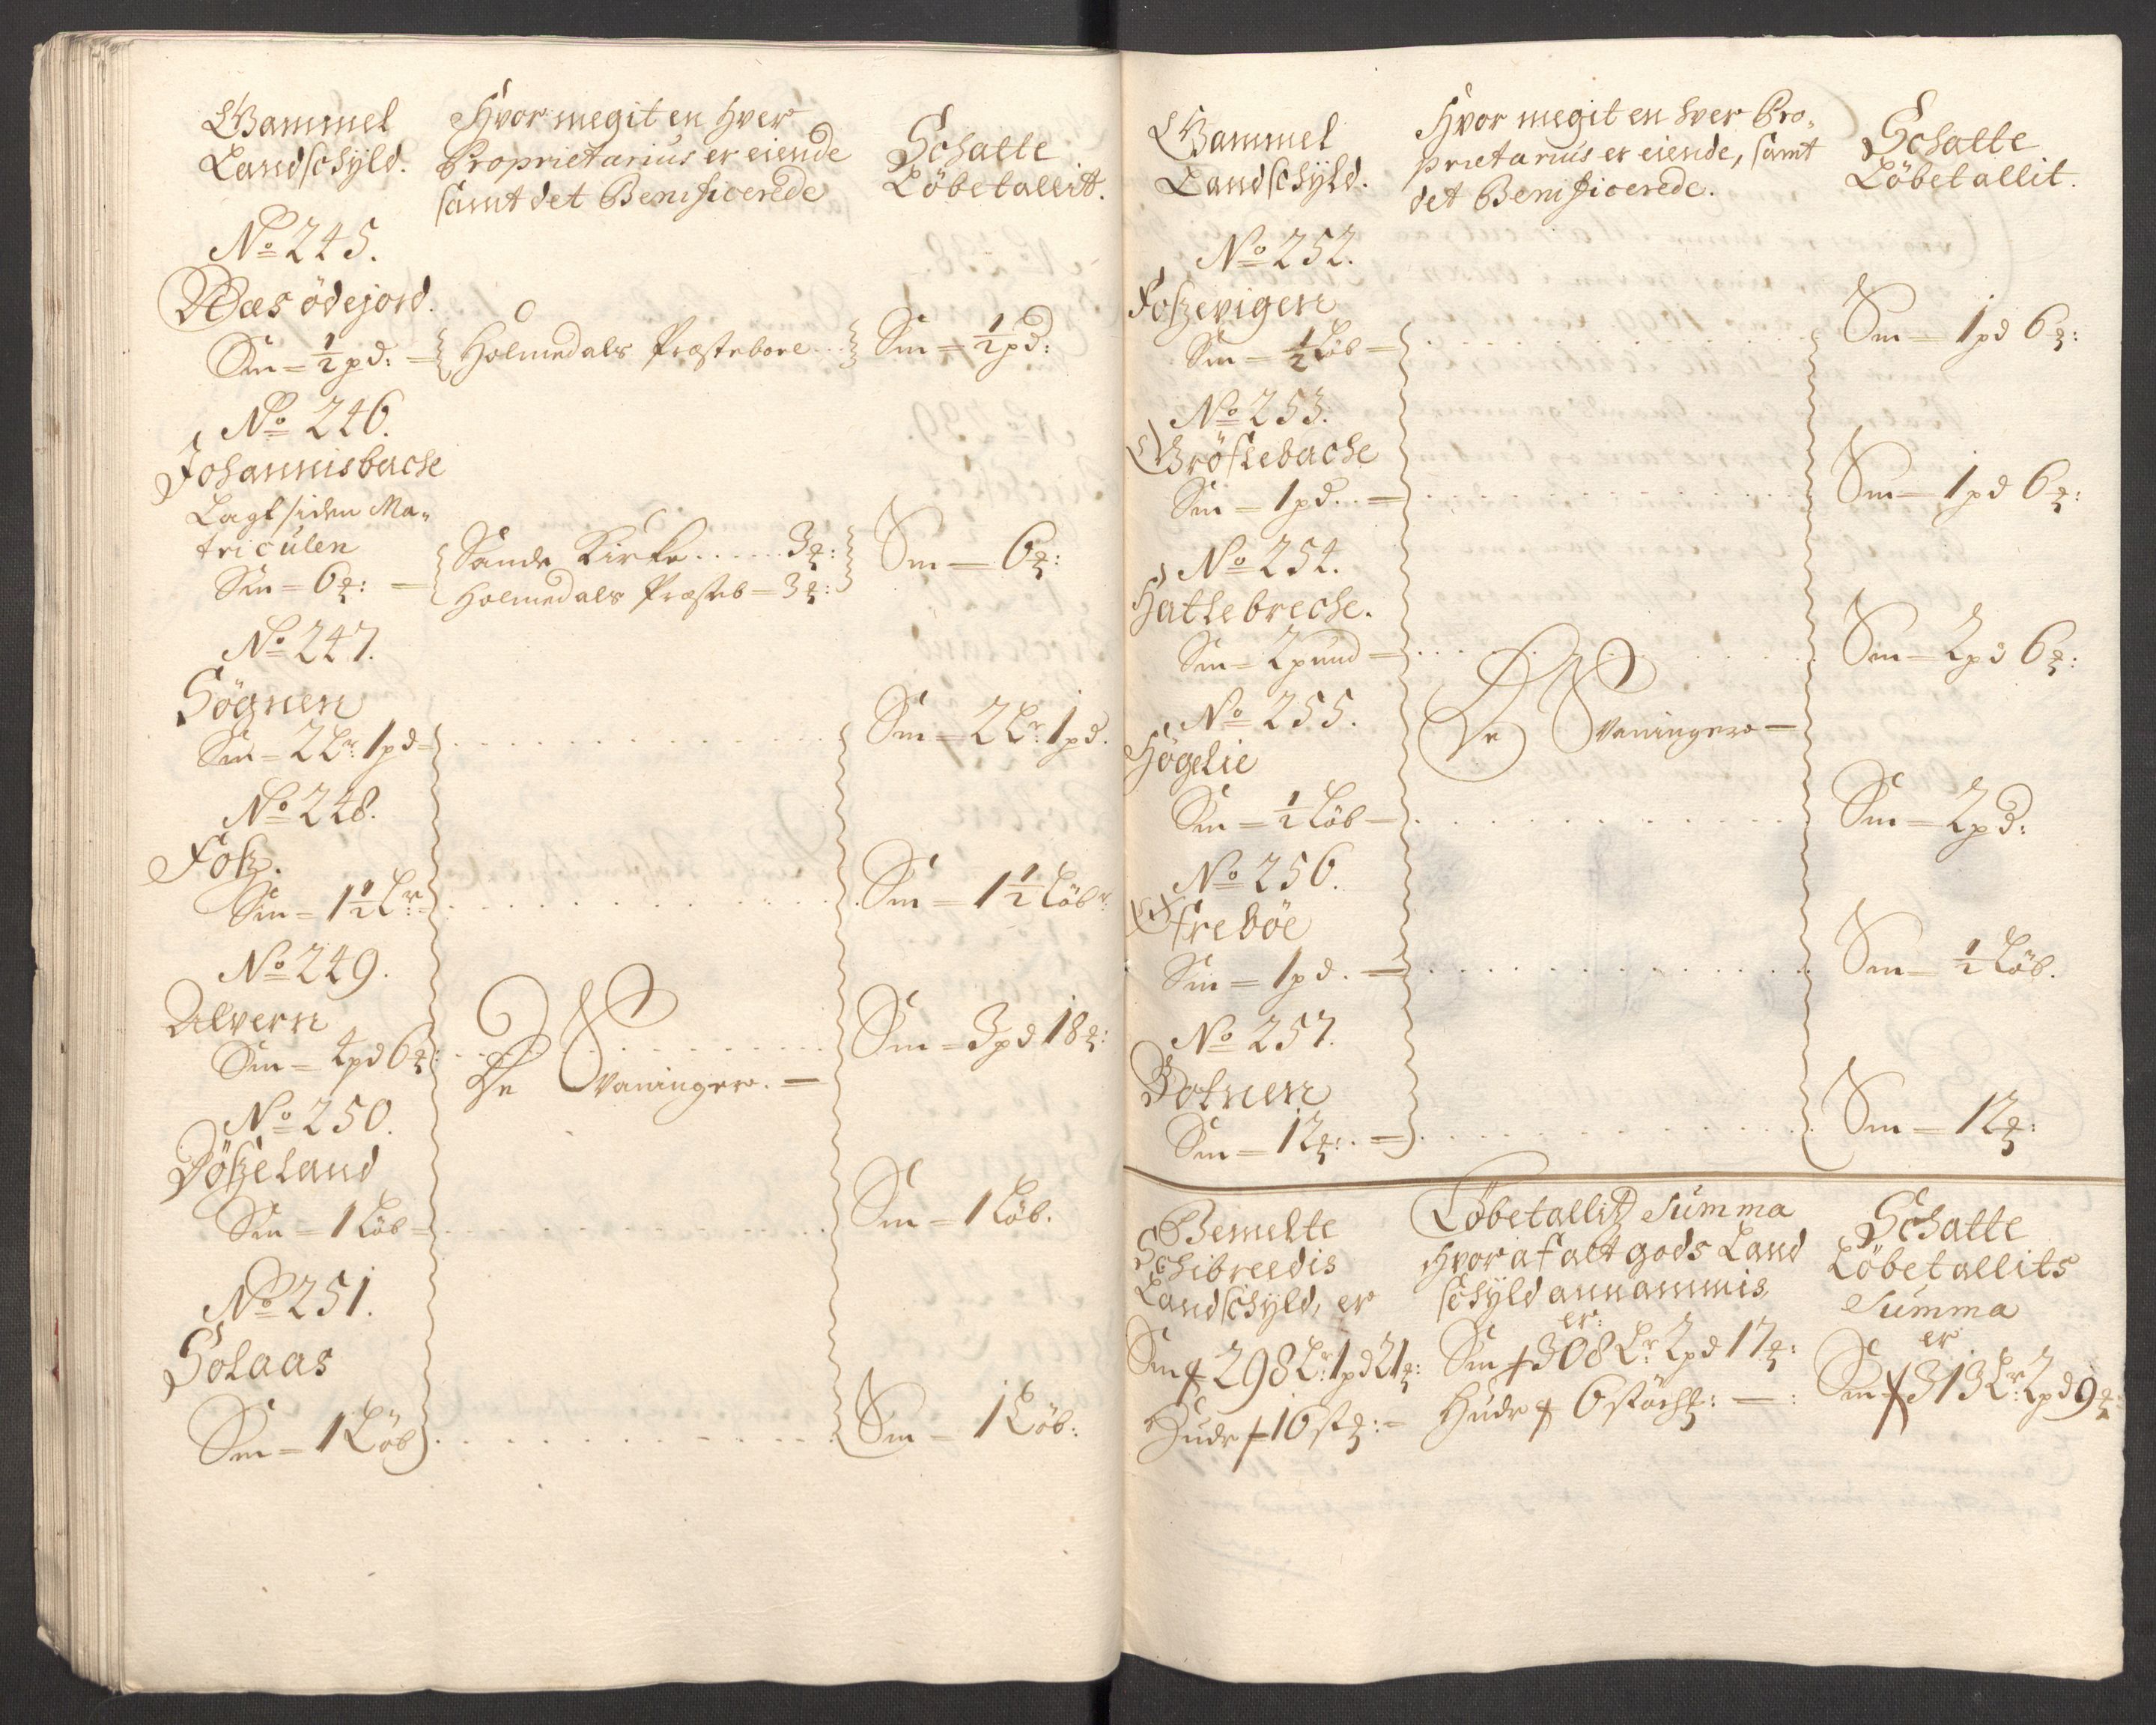 Gammel
Landschyld.
Hvor megit en hver
Proprietarius er eiende
samt det Benificerede
Schatte
Løbetallit.
No 245.
Næs ödejord.
Sm = 1/2 pd: =
Holmedals Præstebore
Sm = 1/2 pd:
No 246.
Johannisbache
Lagt siden Ma„
triculen
Sm = 6 ₰: =
Sande Kirke ..... 3 ₰:
Holmedals Præsteb = 3 ₰:
Sm = 6 ₰:
No 247.
Sögnen
Sm = 2 Lr: 1 pd =
Sm = 2 Lr: 1 pd.
No 248.
Fotz.
Sm = 1 1/2 Lr =
Sm = 1 1/2 Løbr
No 249.
Alvern
Sm = 4 pd 6 ₰:
De Svaninger. =
Sm = 3 pd 18 ₰:
No 250.
Döseland
Sm = 1 Løb =
Sm = 1 Løb.
No 251.
Solaas
Sm = 1 Løb
Sm = 1 Løb.
Gammel
Landschyld.
Hvor megit en hver Pro„
prietarius er eiende, samt
det Benificerede.
Schatte
Løbetallit.
No 252.
Fotzevigen
Sm = 1/2 Løb =
Sm = 1 pd 6 ₰:
No 253.
Gröslebache
Sm = 1 pd. =
Sm = 1 pd 6 ₰:
No 254.
Hatlebreche.
Sm = 2 pund =
Sm = 2 pd 6 ₰:
No 255.
Högelie
De Svaninger =
Sm = 1/2 Løb =
Sm = 2 pd:
No 256.
Strebøe
Sm = 1 pd. =
Sm = 1/2 Løb.
No 257.
Botnen
Sm = 12 ₰: =
Sm = 12 ₰:
Bemelte
Schibreedis
Landschyld, er
Sm 298 Lr: 1 pd 21 ₰:
Hudr 16 st ₰: =
Løbetallitz Summa
Hvor af alt gods Land
schyld annammis
er:
Sm 308 Lr 2 pd 17 ₰:
Hudr 6 stöch: =
Schatte
Løbetallits
Summa
er
Sm 313 Lr 2 pd 9 ₰